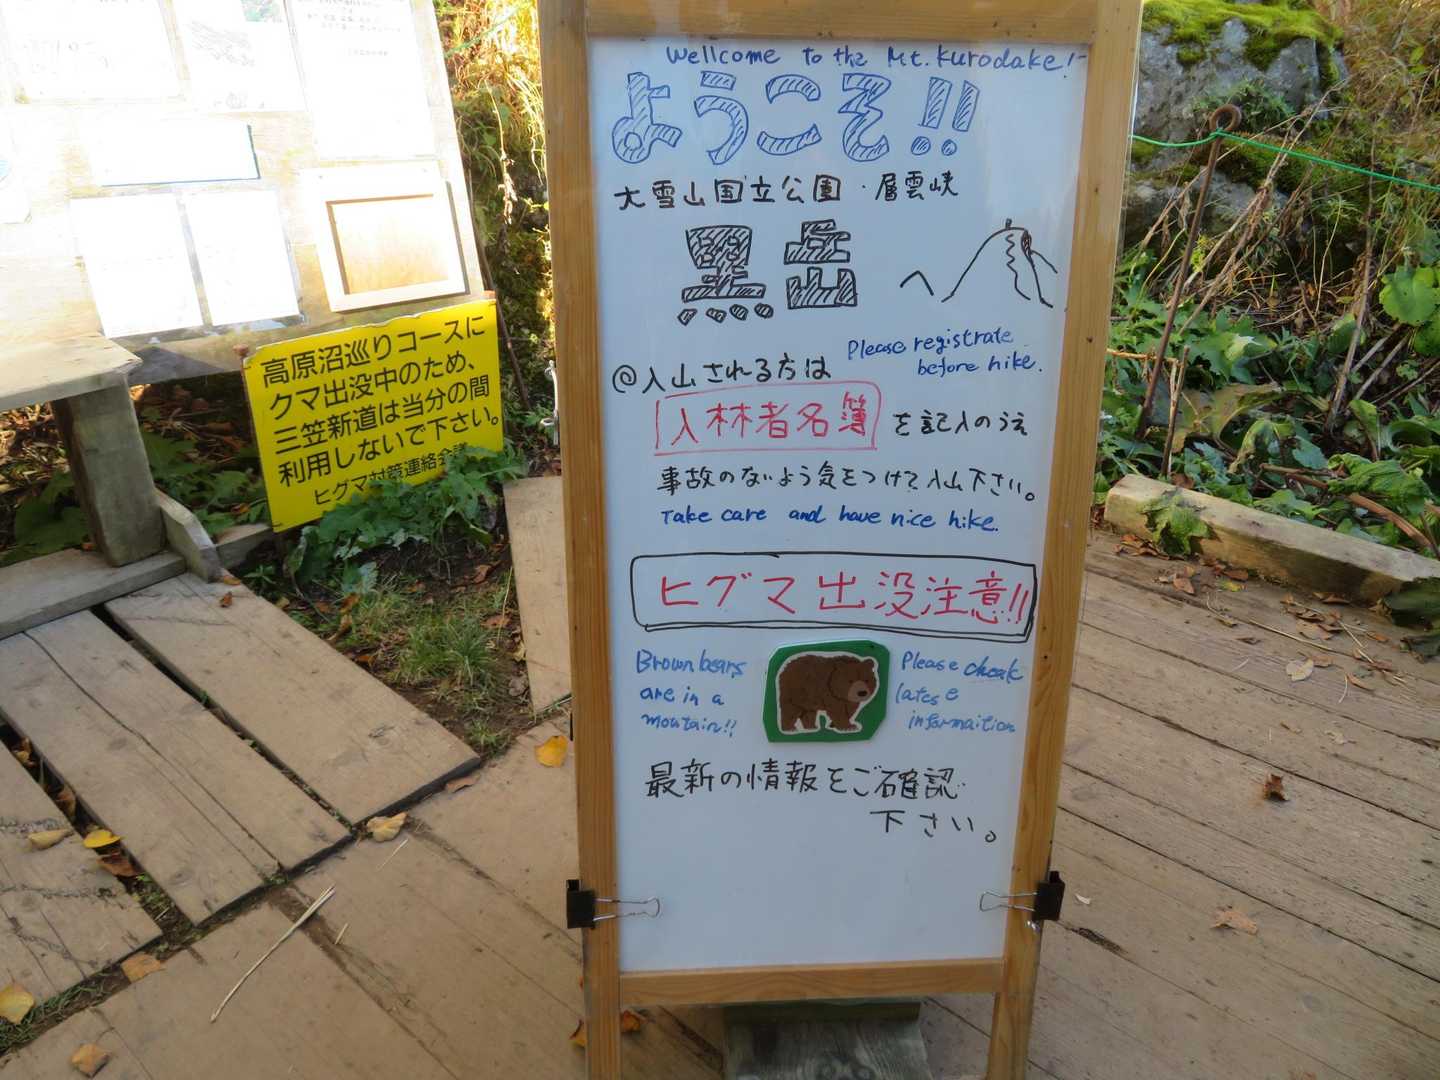 Wellcome to the Mt.Kurodake!
ようこそ!!
大雪山国立公園・層雲峡
黒岳
Please registrate
before hike.
@入山される方は
入林者名簿 を記入のうえ
事故のないよう気をつけて入山下さい。
Take care and have nice hike.
ヒグマ出没注意!!
Brown bears
are in a
moutain!!
Please cheak
latese
informaition
最新の情報をご確認
下さい。
高原沼巡りコースに
クマ出没中のため、
三笠新道は当分の間
利用しないで下さい。
ヒグマ対策連絡会議